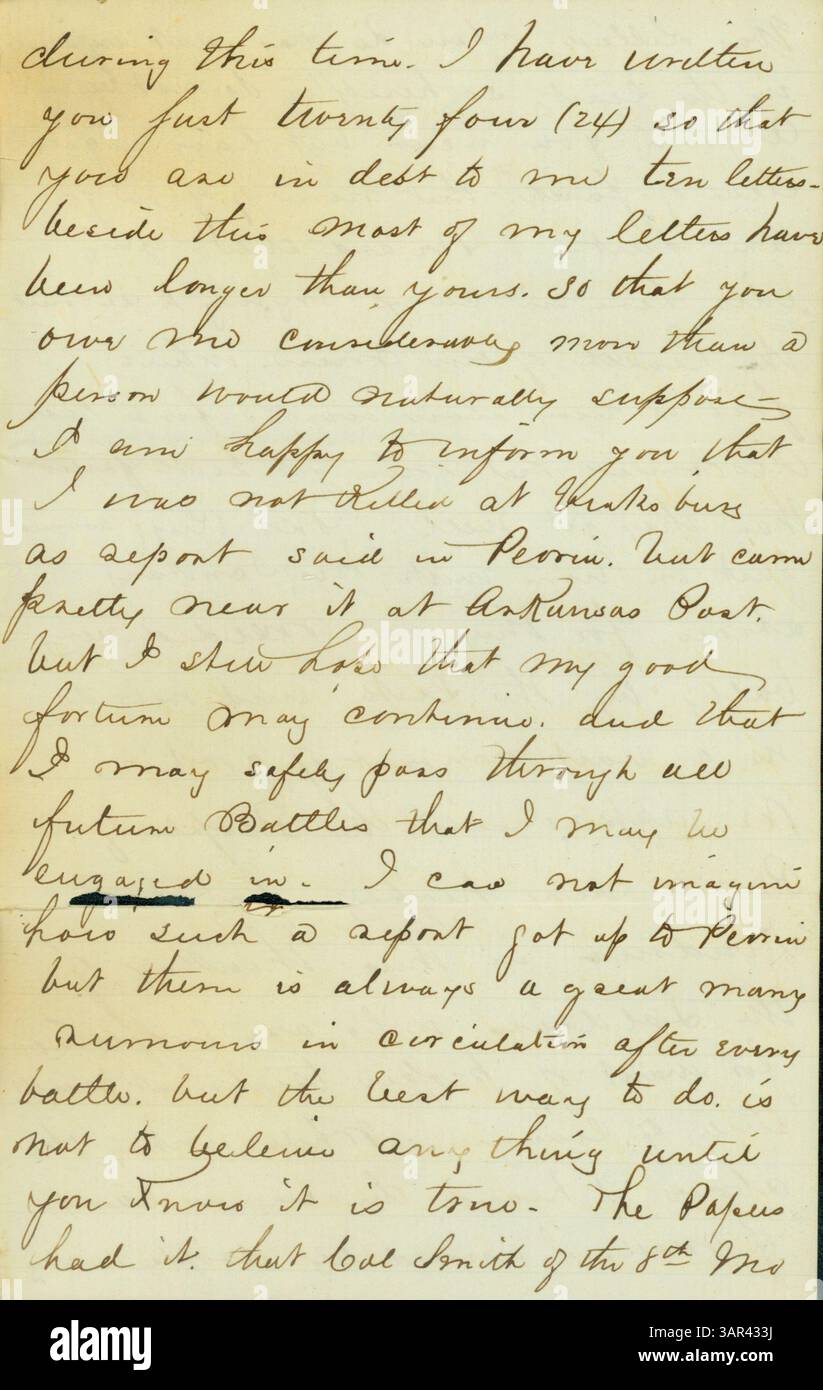 during this time. I have written
you just twenty four (24) so that
you are in debt to me ten letters-
beside this most of my letters have
been longer than yours. so that you
owe me considerably more than a
person would naturally suppose-
I am happy to inform you, that
I was not Killed at
as report said in Peoria. but came
pretty near it at Arkansas Post.
but I still hope that my good
fortune may continue. and that
I may safely pass through all
future Battles that I may be
engaged in. I can not imagine
how such a report got up to Peoria
but there is always a great many
rumours in circulation after every
battle. but the best way to do. is
not to beleive any thing until
you Know it is true- The Papers
had it. that Col Smith of the 8th Mo
alamy
alamy
Image ID: 3AR433J
www.alamy.com